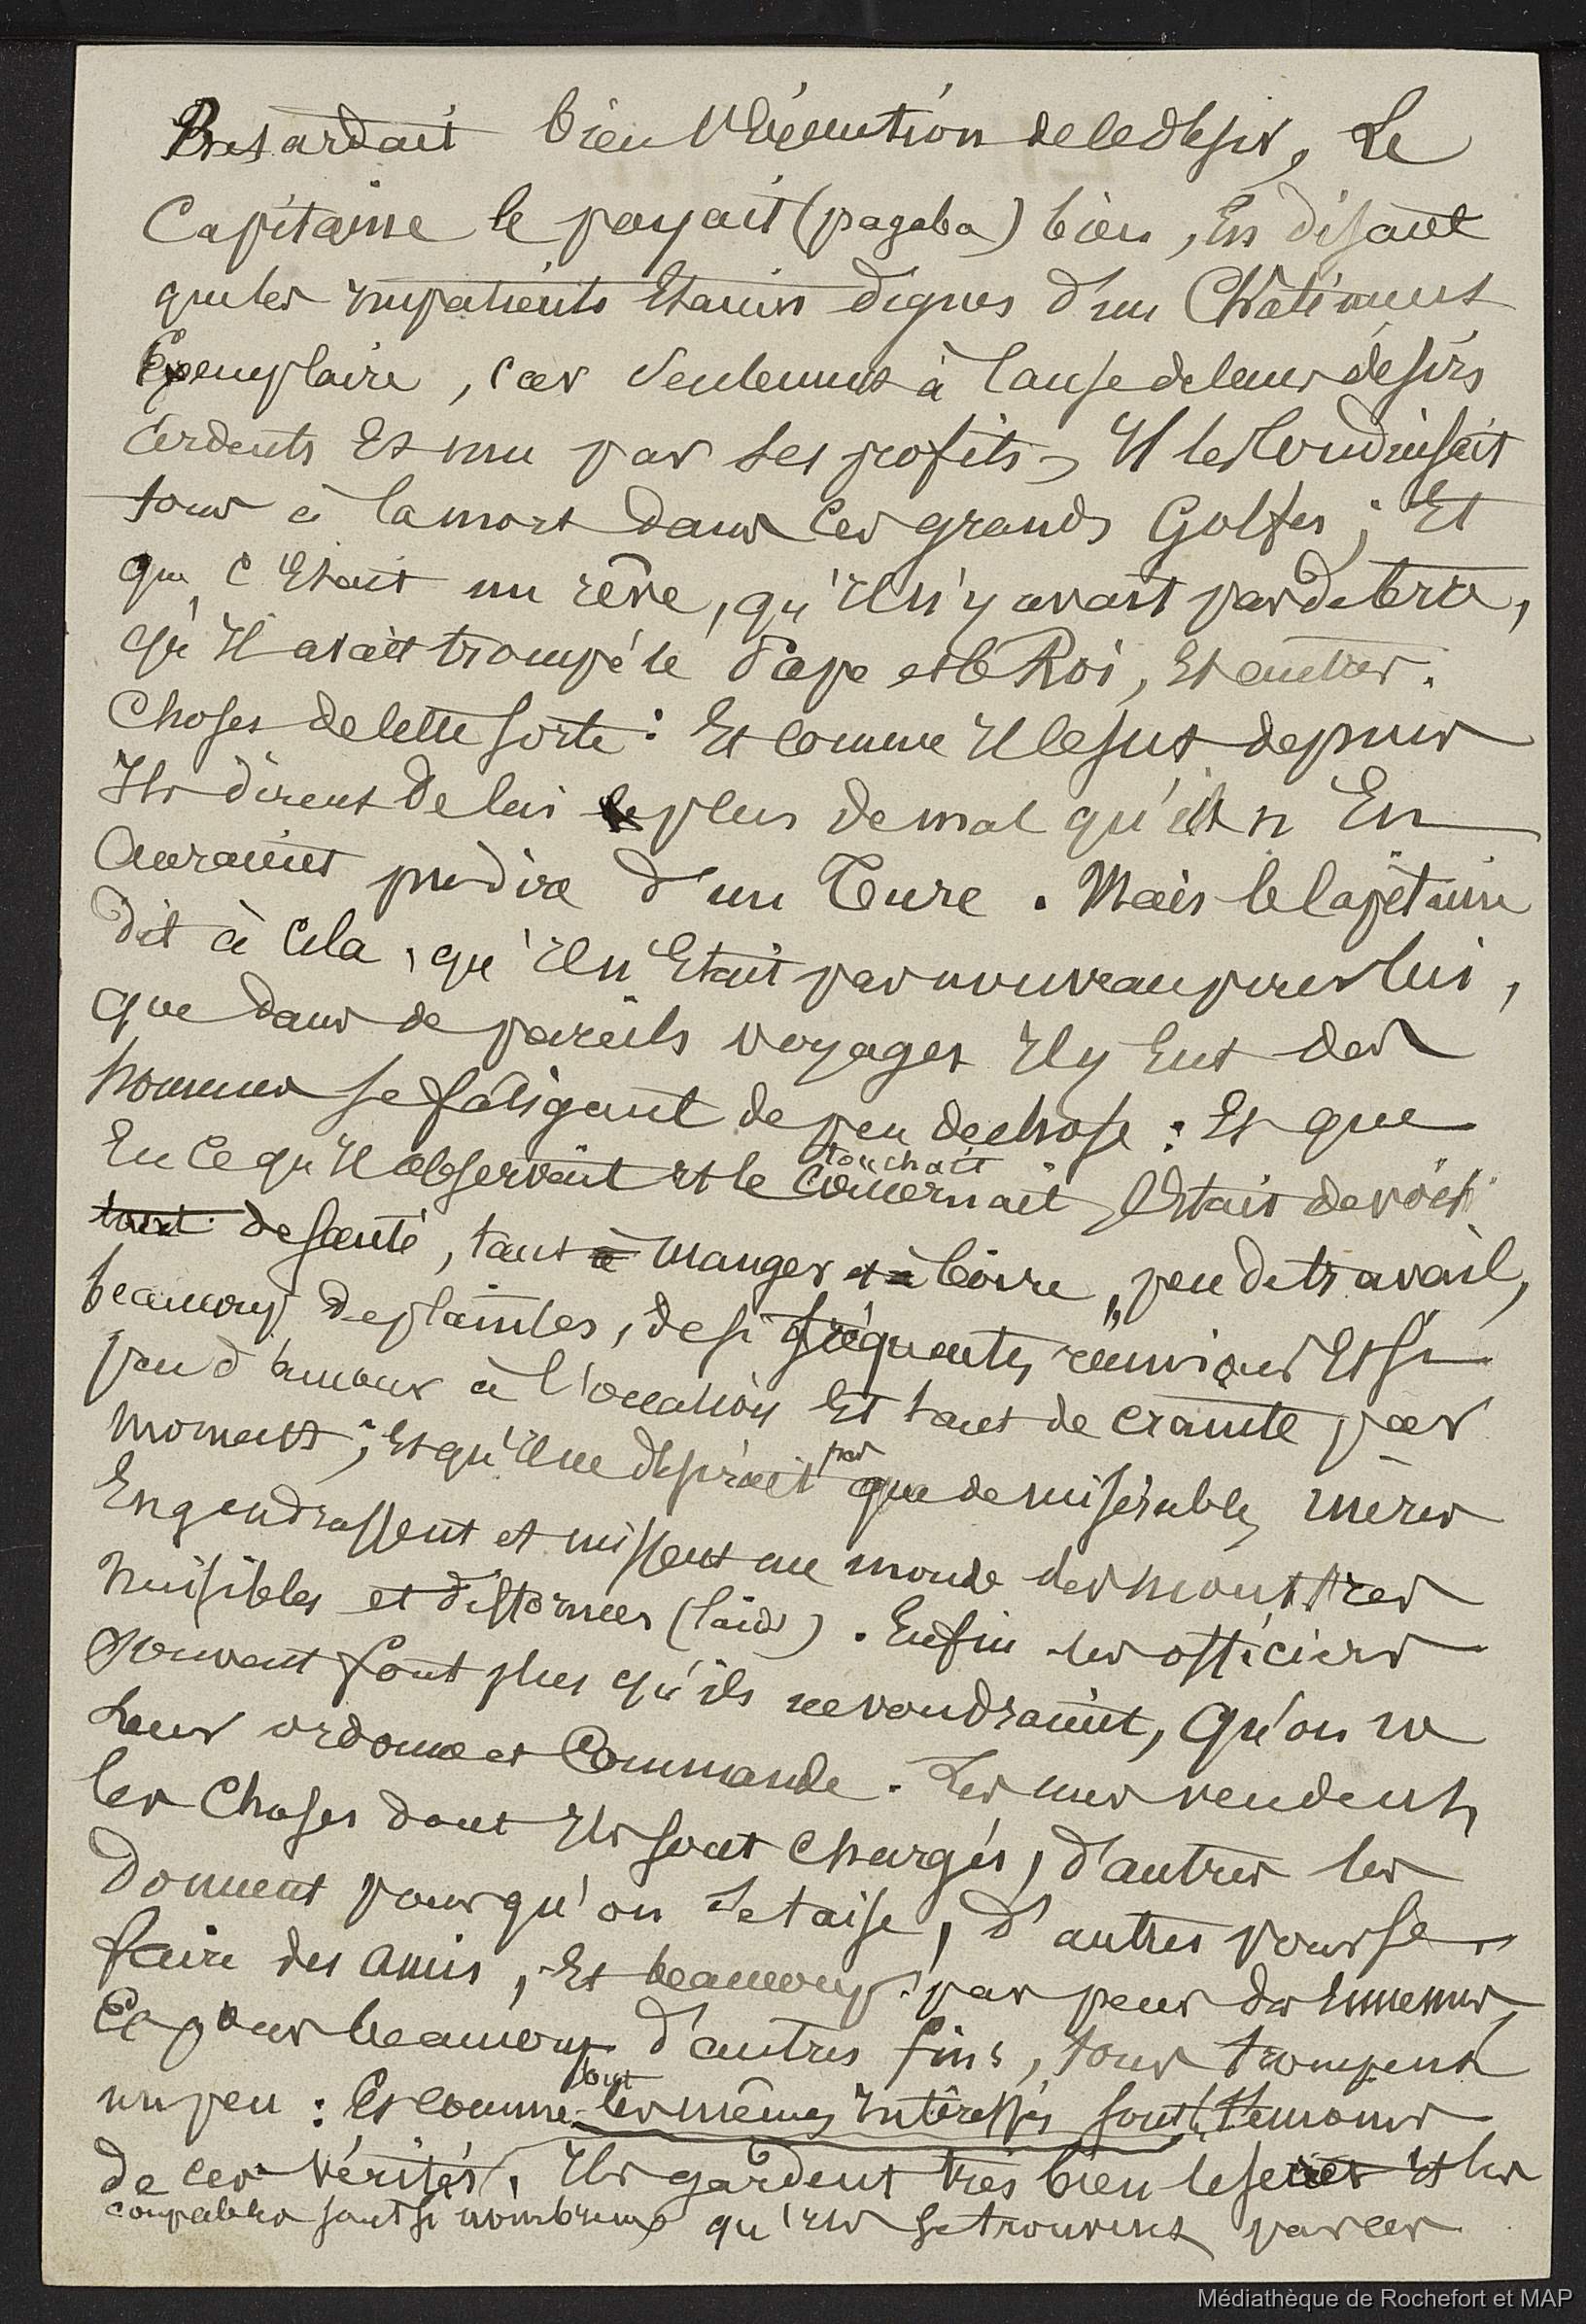 Retardait bien l'éxécution de ce désir, Le
Capitaine le payait (pagaba) bien, En disant
que les impatients Etaient dignes d'un Châtiment
Exemplaire, car seulement à Cause de leurs désirs
ardents Et mu par ses profits, Il les Conduisait
tous à la mort dans Ces grands Golfes; Et
que c'Etait un rêve, qu'Il n'y avait pas de terre,
qu'Il avait trompé le Pape et le Roi, Et autres.
Choses de cette sorte: Et Comme Il le sut depuis
Ils dirent de lui le plus de mal qu'ils n'En
Auraient pu dire d'un Turc. Mais le Capitaine
dit à Cela, qu'Il n'Etait pas nouveau pour lui,
que dans de pareils voyages Il y Eut des
hommes se fatigant de peu de chose: Et que
En Ce qu'Il observait et le touchait Concernait, C'Etait de voir
tant de santé, tant à manger et à boire, peu de travail,
beaucoup de plaintes, de si fréquentes réunions Et si
peu d'amour à l'occasion Et tant de crainte par
moments; Et qu'Il ne désirait pas que de misérables mères
Engendrassent et missent au monde des monstres
Nuisibles et difformes (laids). Enfin les officiers
souvent font plus qu'ils ne voudraient, Qu'on ne
Leur ordonne et Commande. Les uns vendent
les Choses dont Ils sont Chargés, d'autres les
Donnent pour qu'on se taise, d'autres pour se
faire des amis, Et beaucoup par peur des Ennemis,
Et pour beaucoup d'autres fins, tous trompent
un peu: Et comme sont les mêmes Intéressés sont témoins
de ces vérités, Ils gardent très bien le secret Et les
coupables sont si nombreux qu'Ils se trouvent par ces
Médiathèque de Rochefort et MAP